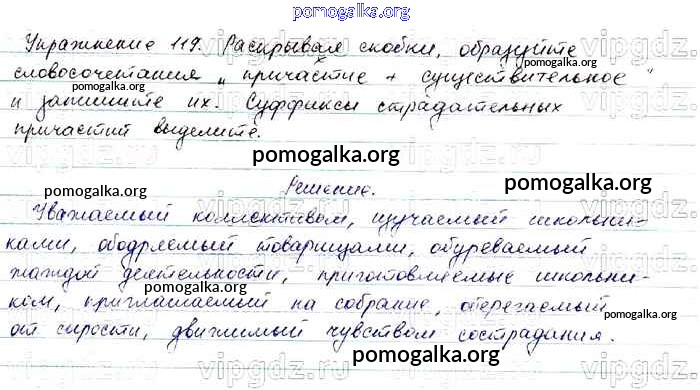 pomogalka.org
Упражнение 119. Раскрывая скобки, образуйте
словосочетания „ причастие + существительное "
и запишите их. Суффиксы страдательных
причастий выделите.
pomogalka.org
Решение.
pomogalka.org
pomogalka.org
Уважаемый коллективом, изучаемый школьни-
ками, ободряемый товарищами, обуреваемый
pomogalka.org
жаждой деятельности, приготовляемые школьни-
pomogalka.org
ком, приглашаемый на собрание, оберегаемый
pomogalka.org
от сырости, движимый чувством сострадания.
pomogalka.org
vipgdz.ru